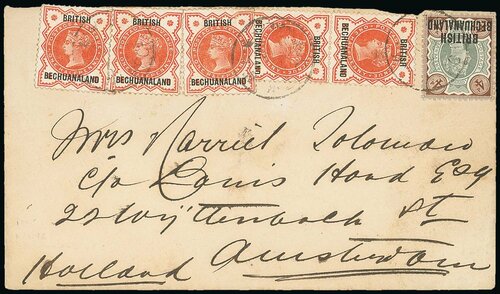 BRITISH
BECHUANALAND
BRITISH
BECHUANALAND
BRITISH
BECHUANALAND
BRITISH
BECHUANALAND
BRITISH
BECHUANALAND
BRITISH
BECHUANALAND
Mrs Harriet Solomon
c/o Louis Hond Esq
22 Wijttenbach St
Amsterdam
Holland